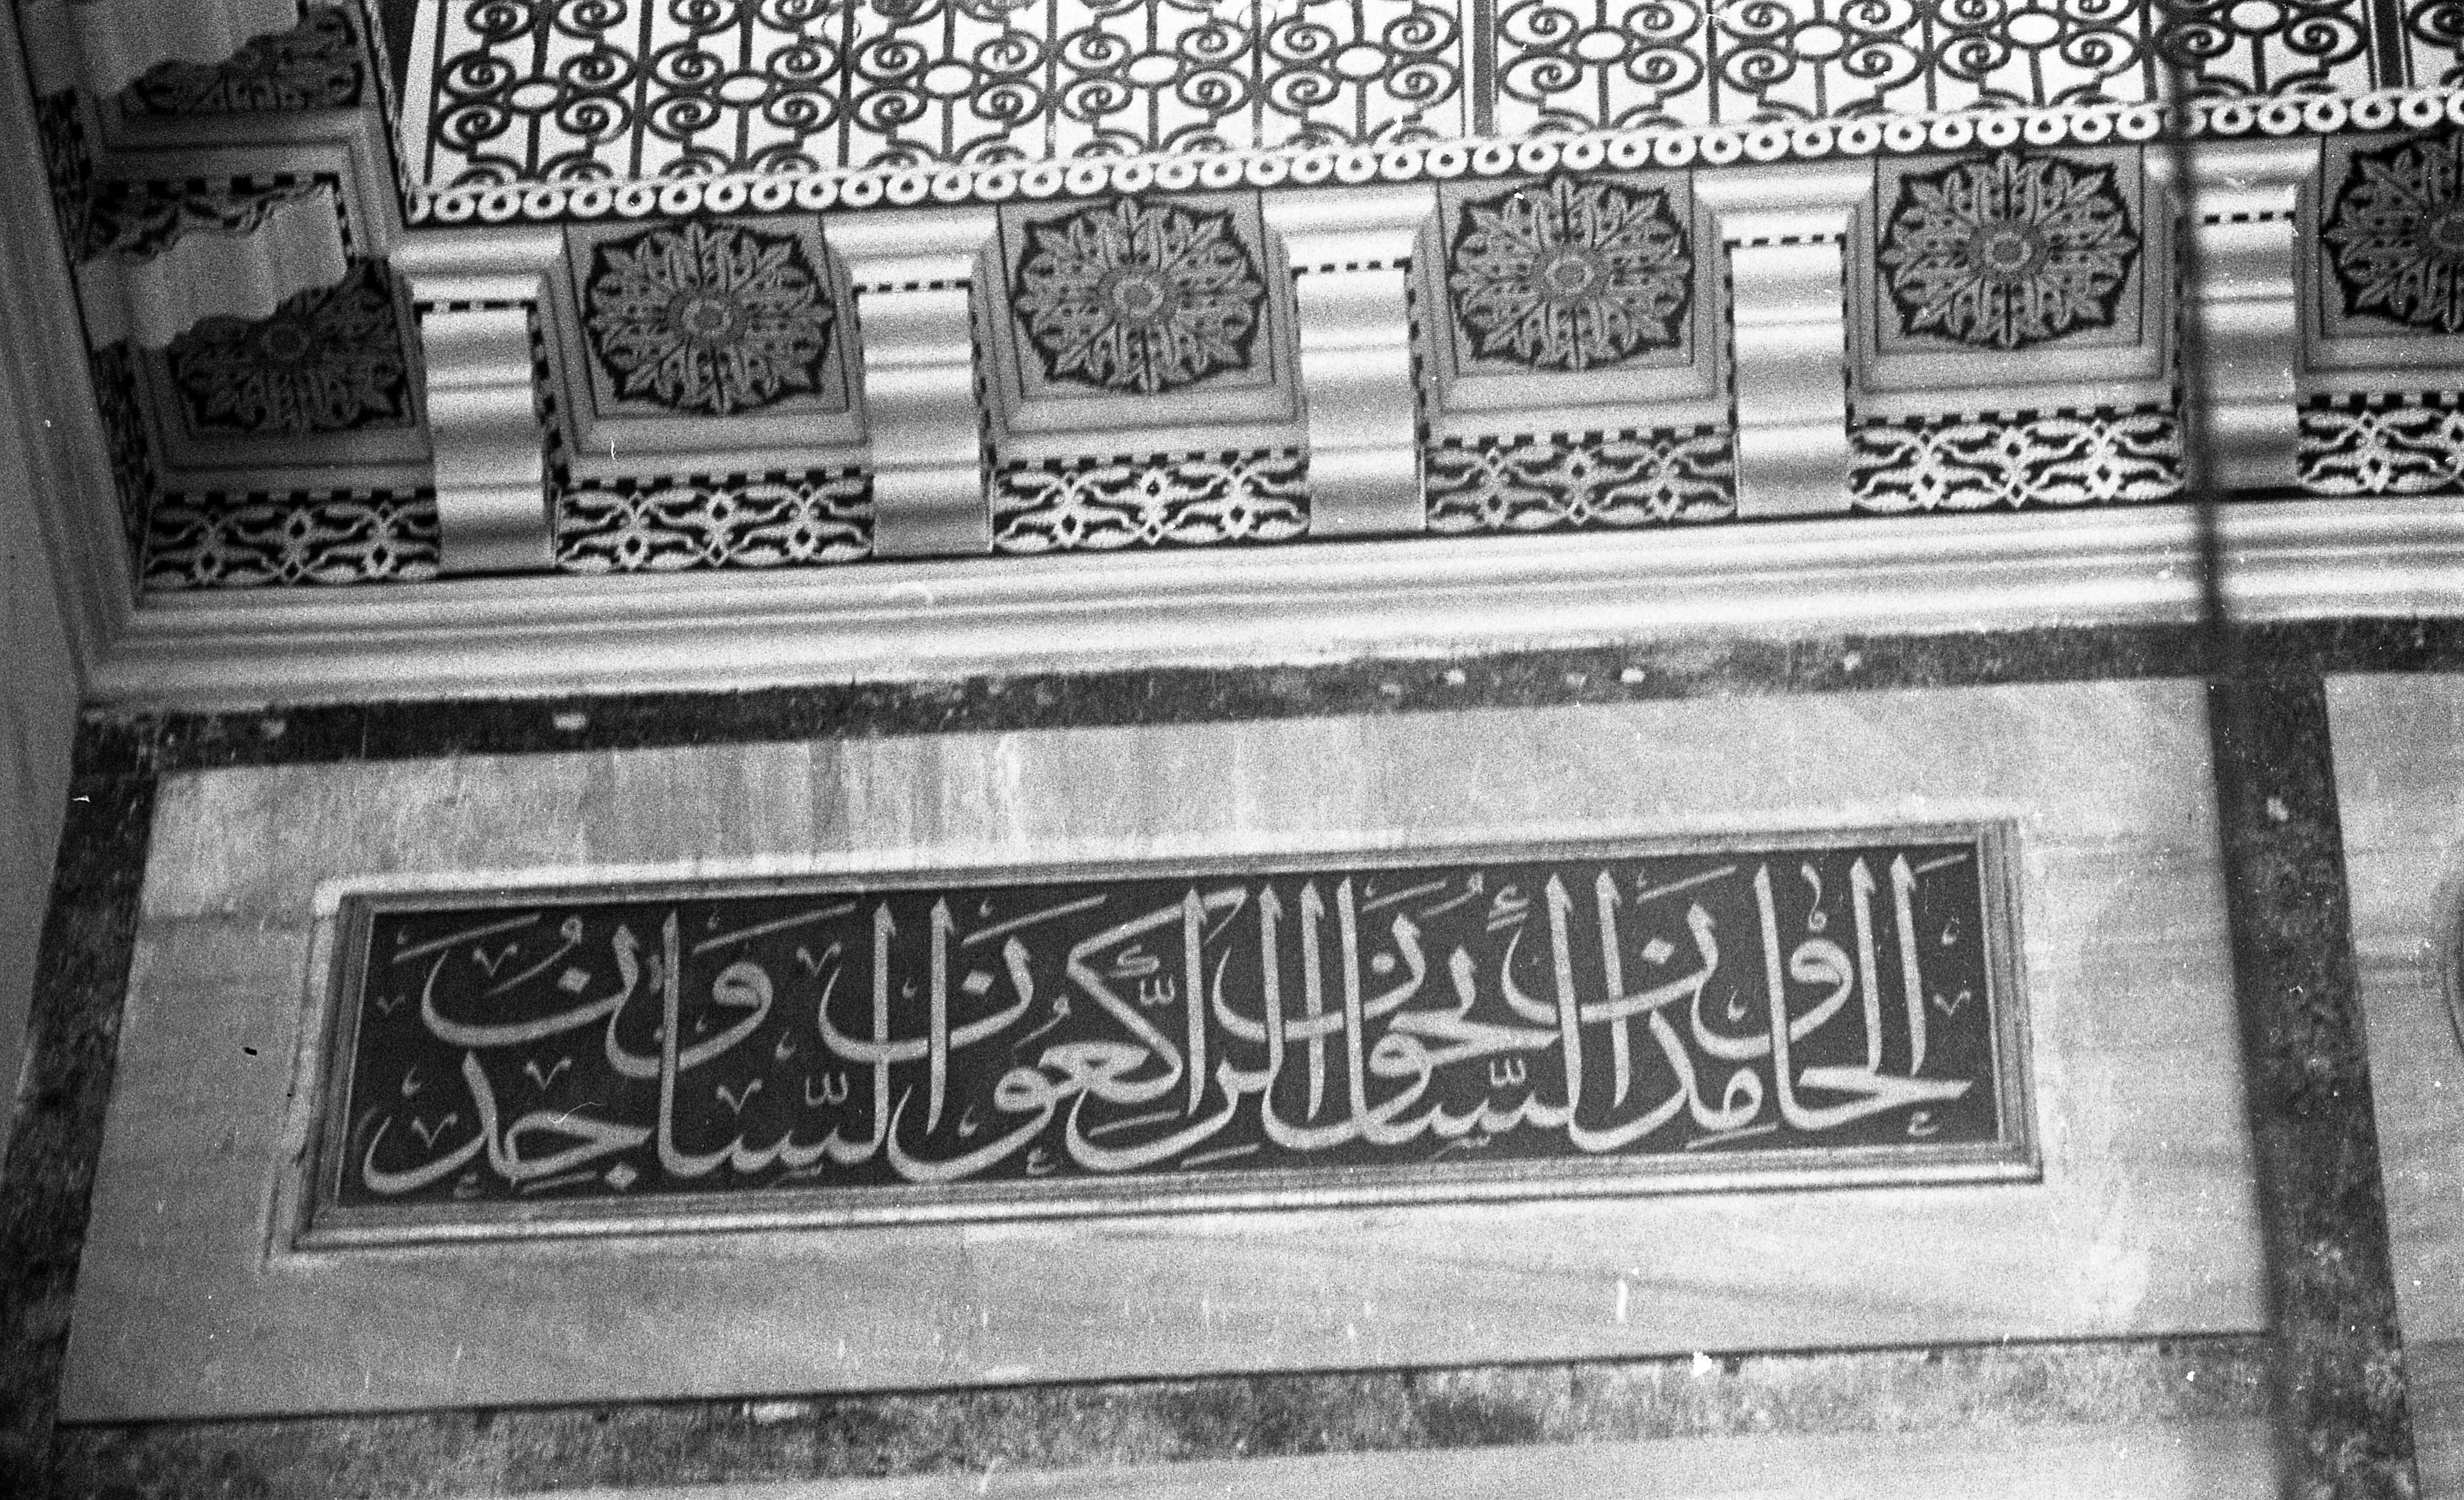 الحامدون السائحون الراكعون الساجدون